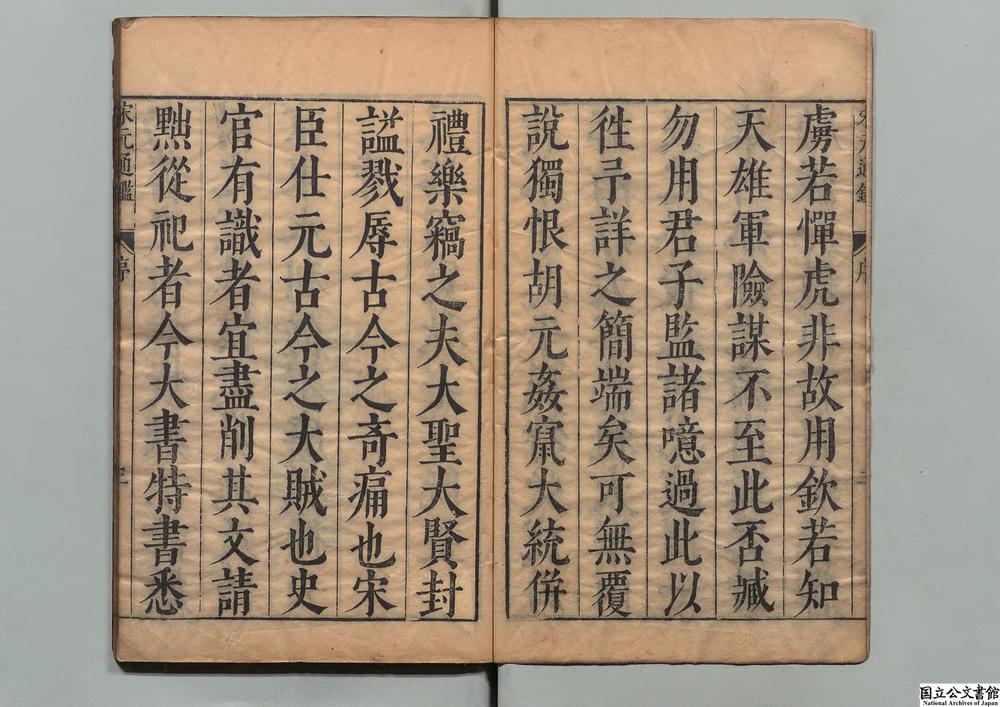 虜若憚虎非故用欽若知
天雄軍險謀不至此否臧
勿用君子監諸噫過此以
徃予詳之簡端矣可無覆
說獨恨胡元姦竄大統倂
禮樂竊之夫大聖大賢封
謚戮辱古今之奇痛也宋
臣仕元古今之大賊也史
官有識者宜盡削其文請
黜從祀者今大書特書悉
宋元通鑑
序
国立公文書館
National Archives of Japan